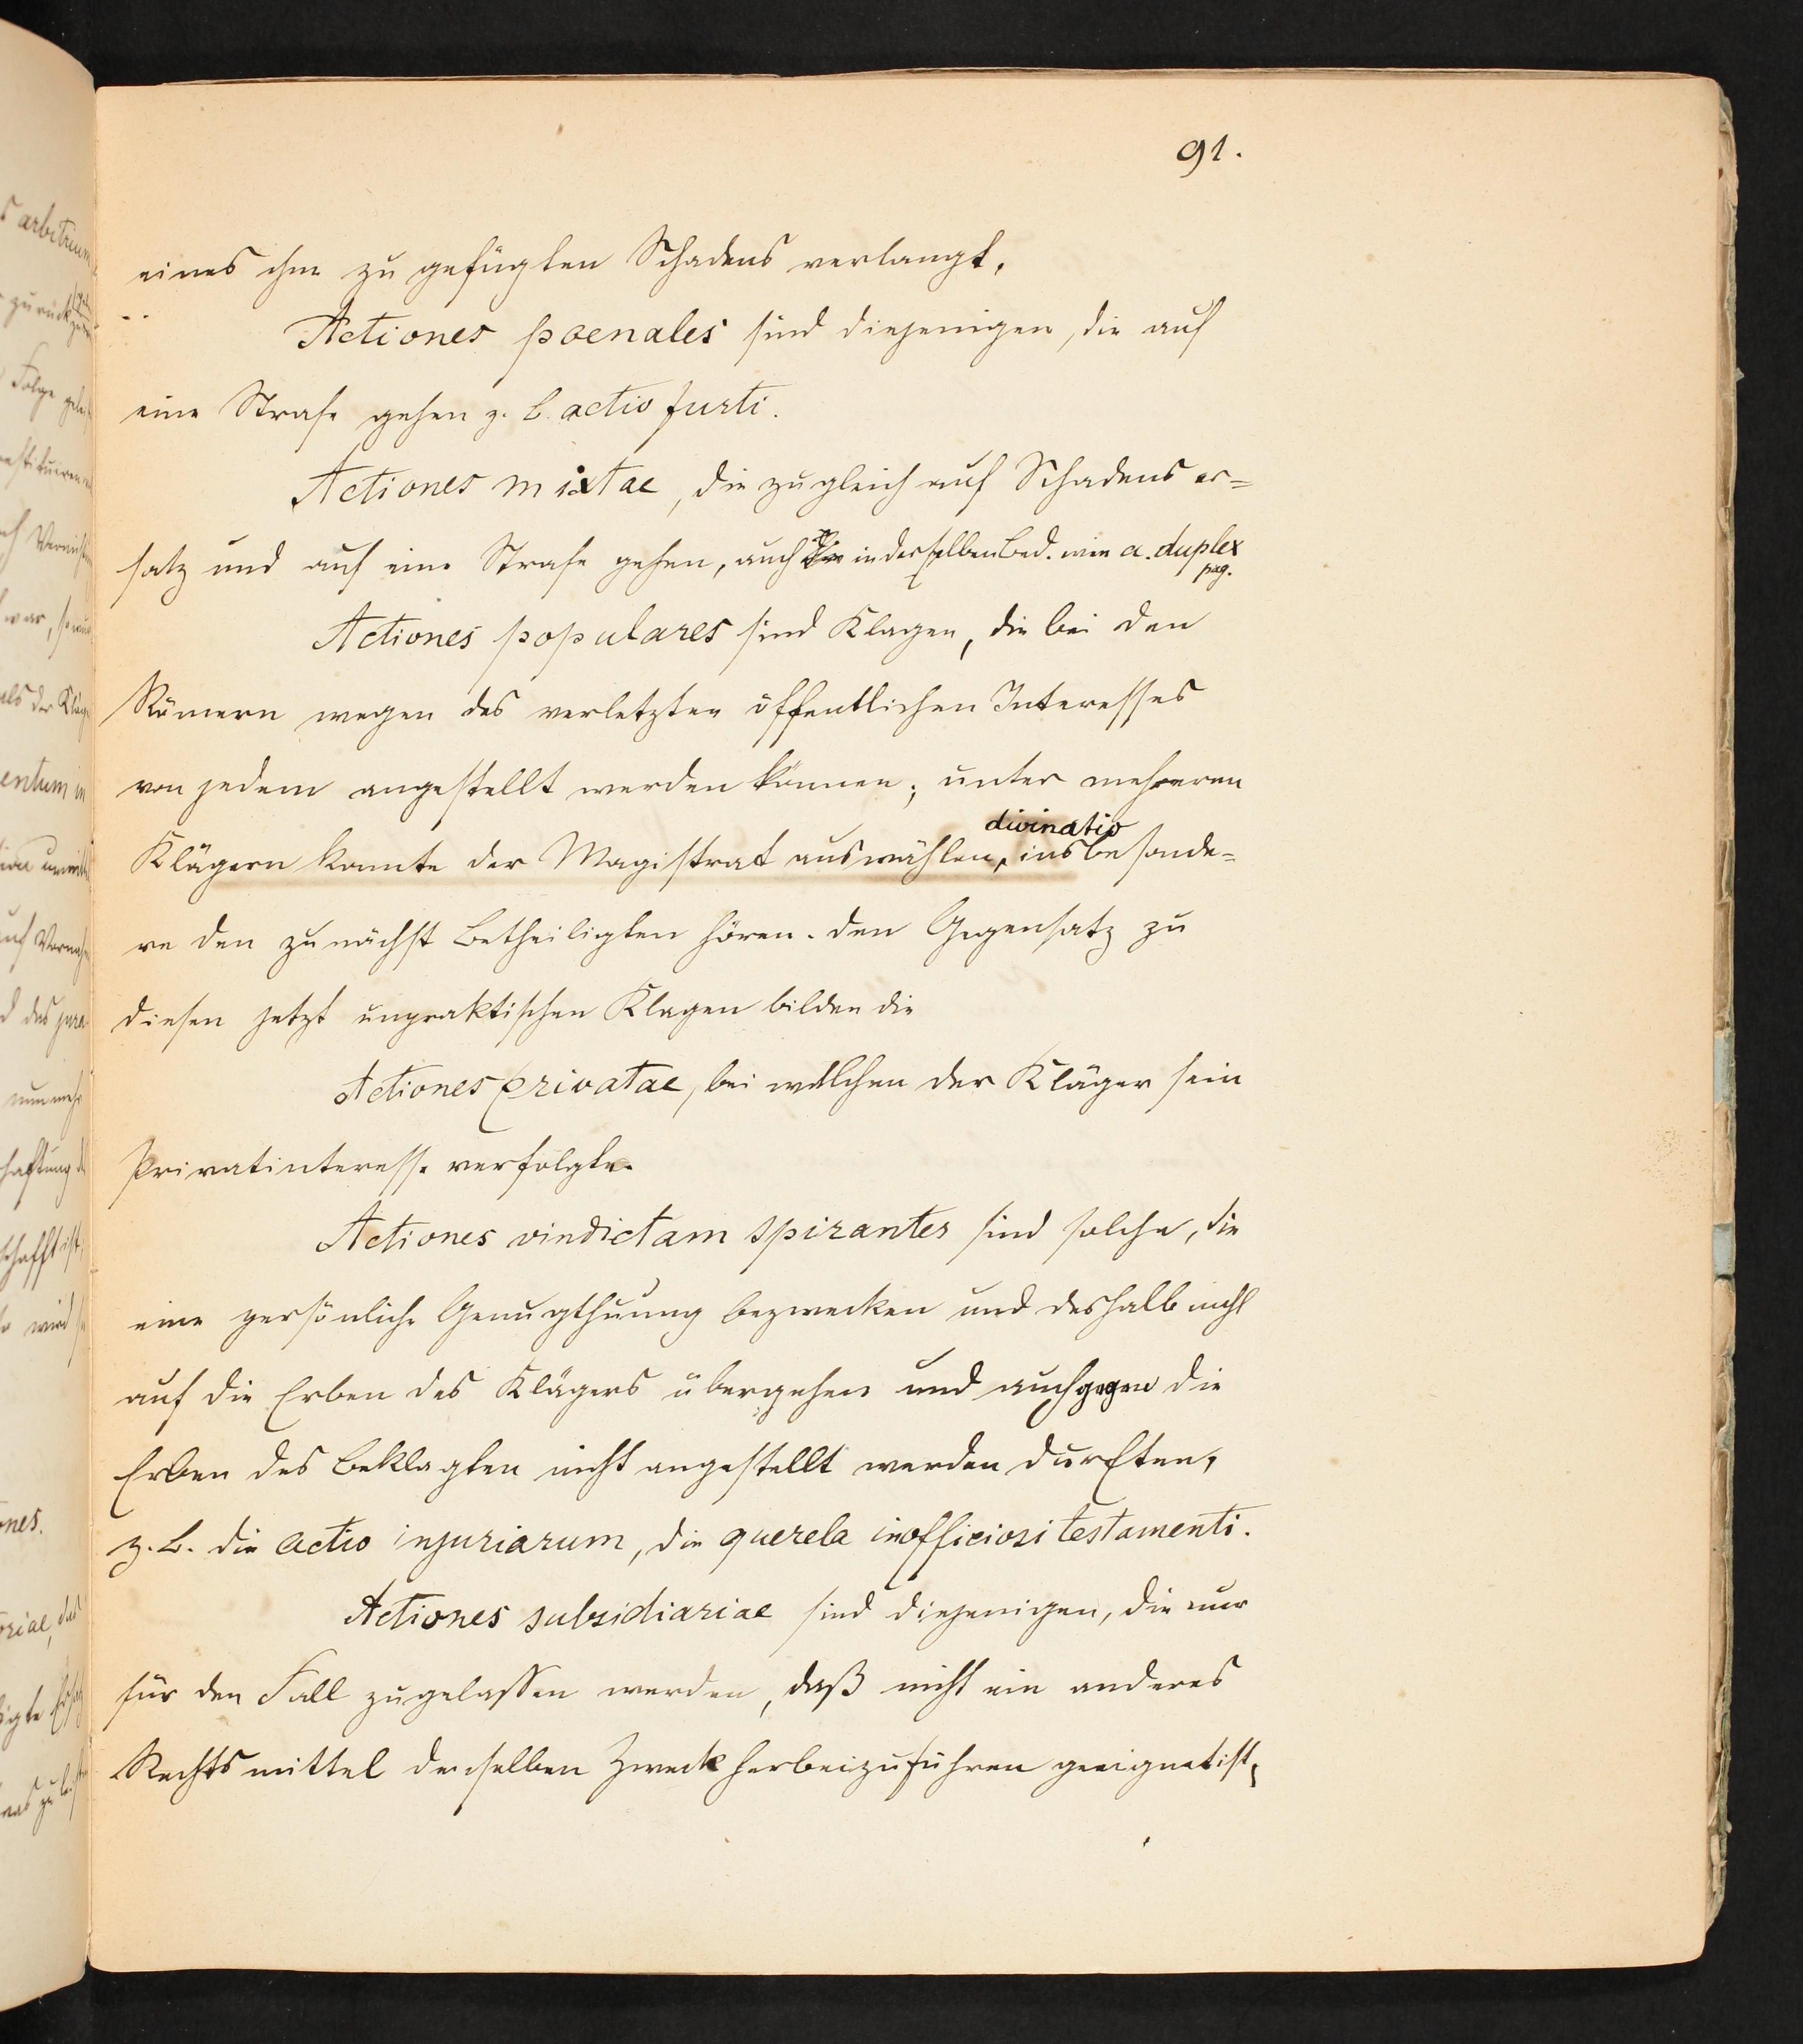 91.
eines ihm zu gefügten Schadens verlangt.
Actiones poenales sind diejenigen, die auf
eine Strafe gehen z. B. actio furti.
Actiones mixtae, die zugleich auf Schadens er=
satz und auf eine Strafe gehen, auch in derselben Bed. wie a. duplex
pag.
Actiones populares sind Klagen, die bei den
Römern wegen des verletzten öffentlichen Interesses
von jedem angestellt werden können; unter mehreren
divinatio
Klägern konnte der Magistrat auswählen, insbesonde=
re den zunächst Betheiligten hören. Den Gegensatz zu
diesen jetzt unpraktischen Klagen bilden die
Actiones privatae, bei welchen der Kläger sein
Privatinteresse verfolgte.
Actiones vindictam spirantes sind solche, die
eine persönliche Genugthuung bezwecken und deshalb nicht
auf die Erben des Klägers übergehen und auch gegen die
Erben des Beklagten nicht angestellt werden durften,
z. B. die actio injuriarum, die querela inofficiosi testamenti.
Actiones subsidiariae sind diejenigen, die nur
für den Fall zugelassen werden, daß nicht ein anderes
Rechtsmittel denselben Zweck herbeizuführen geeignet ist,